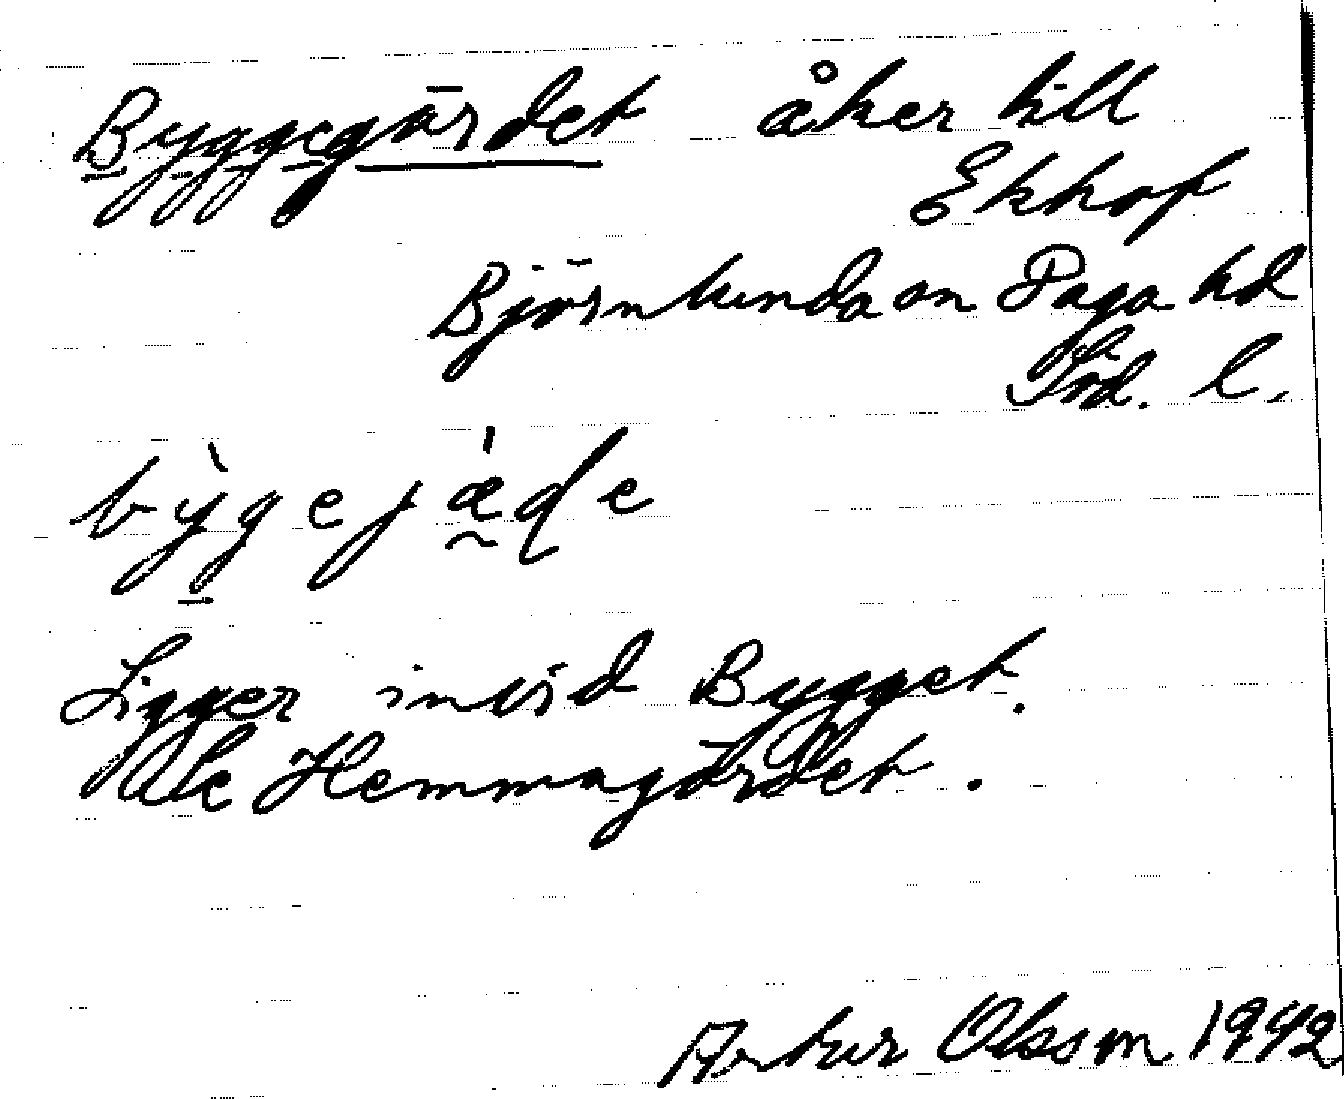 Byggegärdet åker till
Ekhof
Björnlunda sn Daga hd
Söd. l.
bỳgejæ̀de
Ligger invid Bygget.
Hemmagärdet.
Artur Olsson 1942